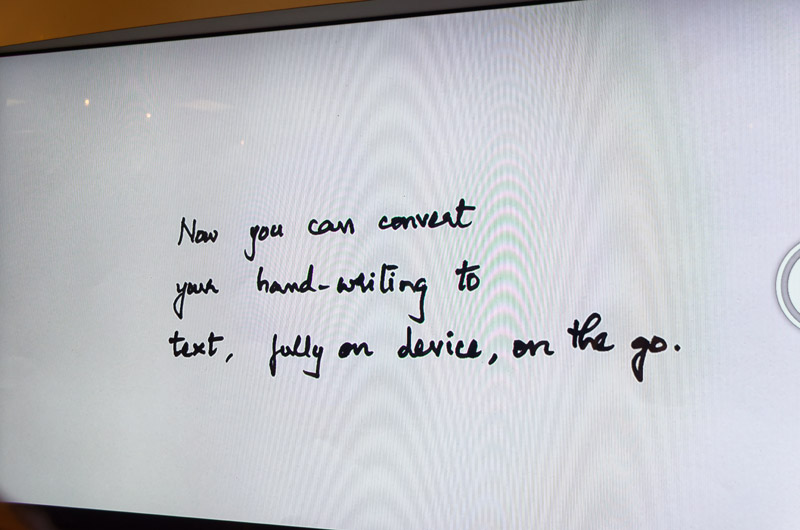 Now you can convert
your hand-writing to
text, fully on device, on the go.